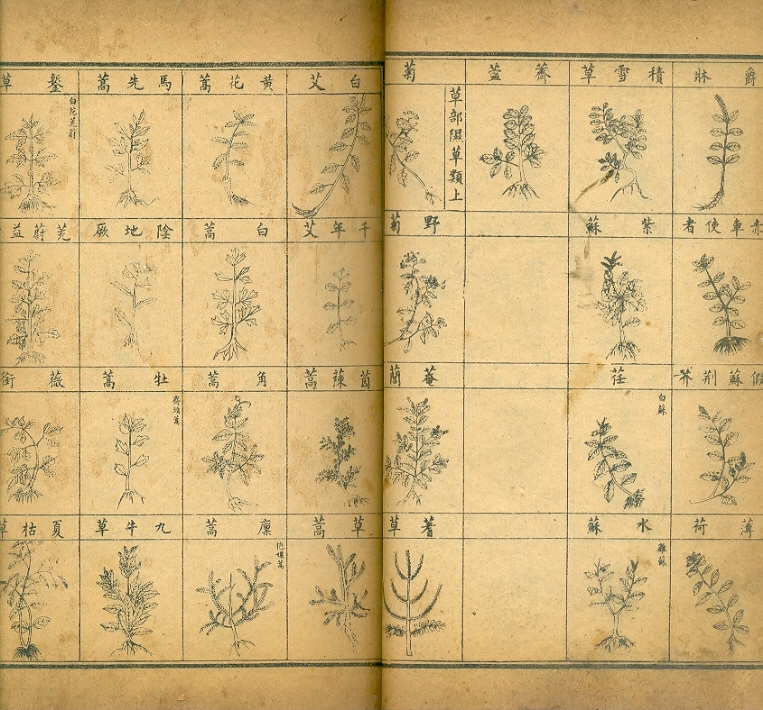 爵牀
赤車使者
假蘇荊芥
薄荷
積雪草
紫蘇
荏
白蘇
水蘇
雞蘇
薺薴
草部隰草類上
菊
野菊
菴䕡
蓍草
白艾
千年艾
茵蔯蒿
草蒿
黃花蒿
白蒿
角蒿
廩蒿
抱娘蒿
馬先蒿
陰地厥
牡蒿
齊頭蒿
九牛草
鏨草
白花茺蔚
茺蔚益
薇銜
夏枯草